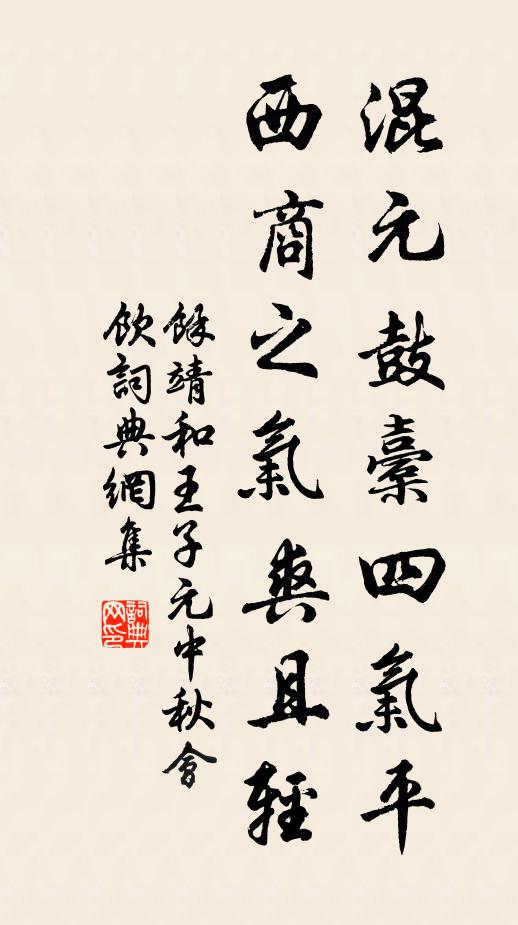 混元鼓橐四氣平
西商之氣爽且輕
餘靖和王子元中秋會
飲詞典網集
詞典网印